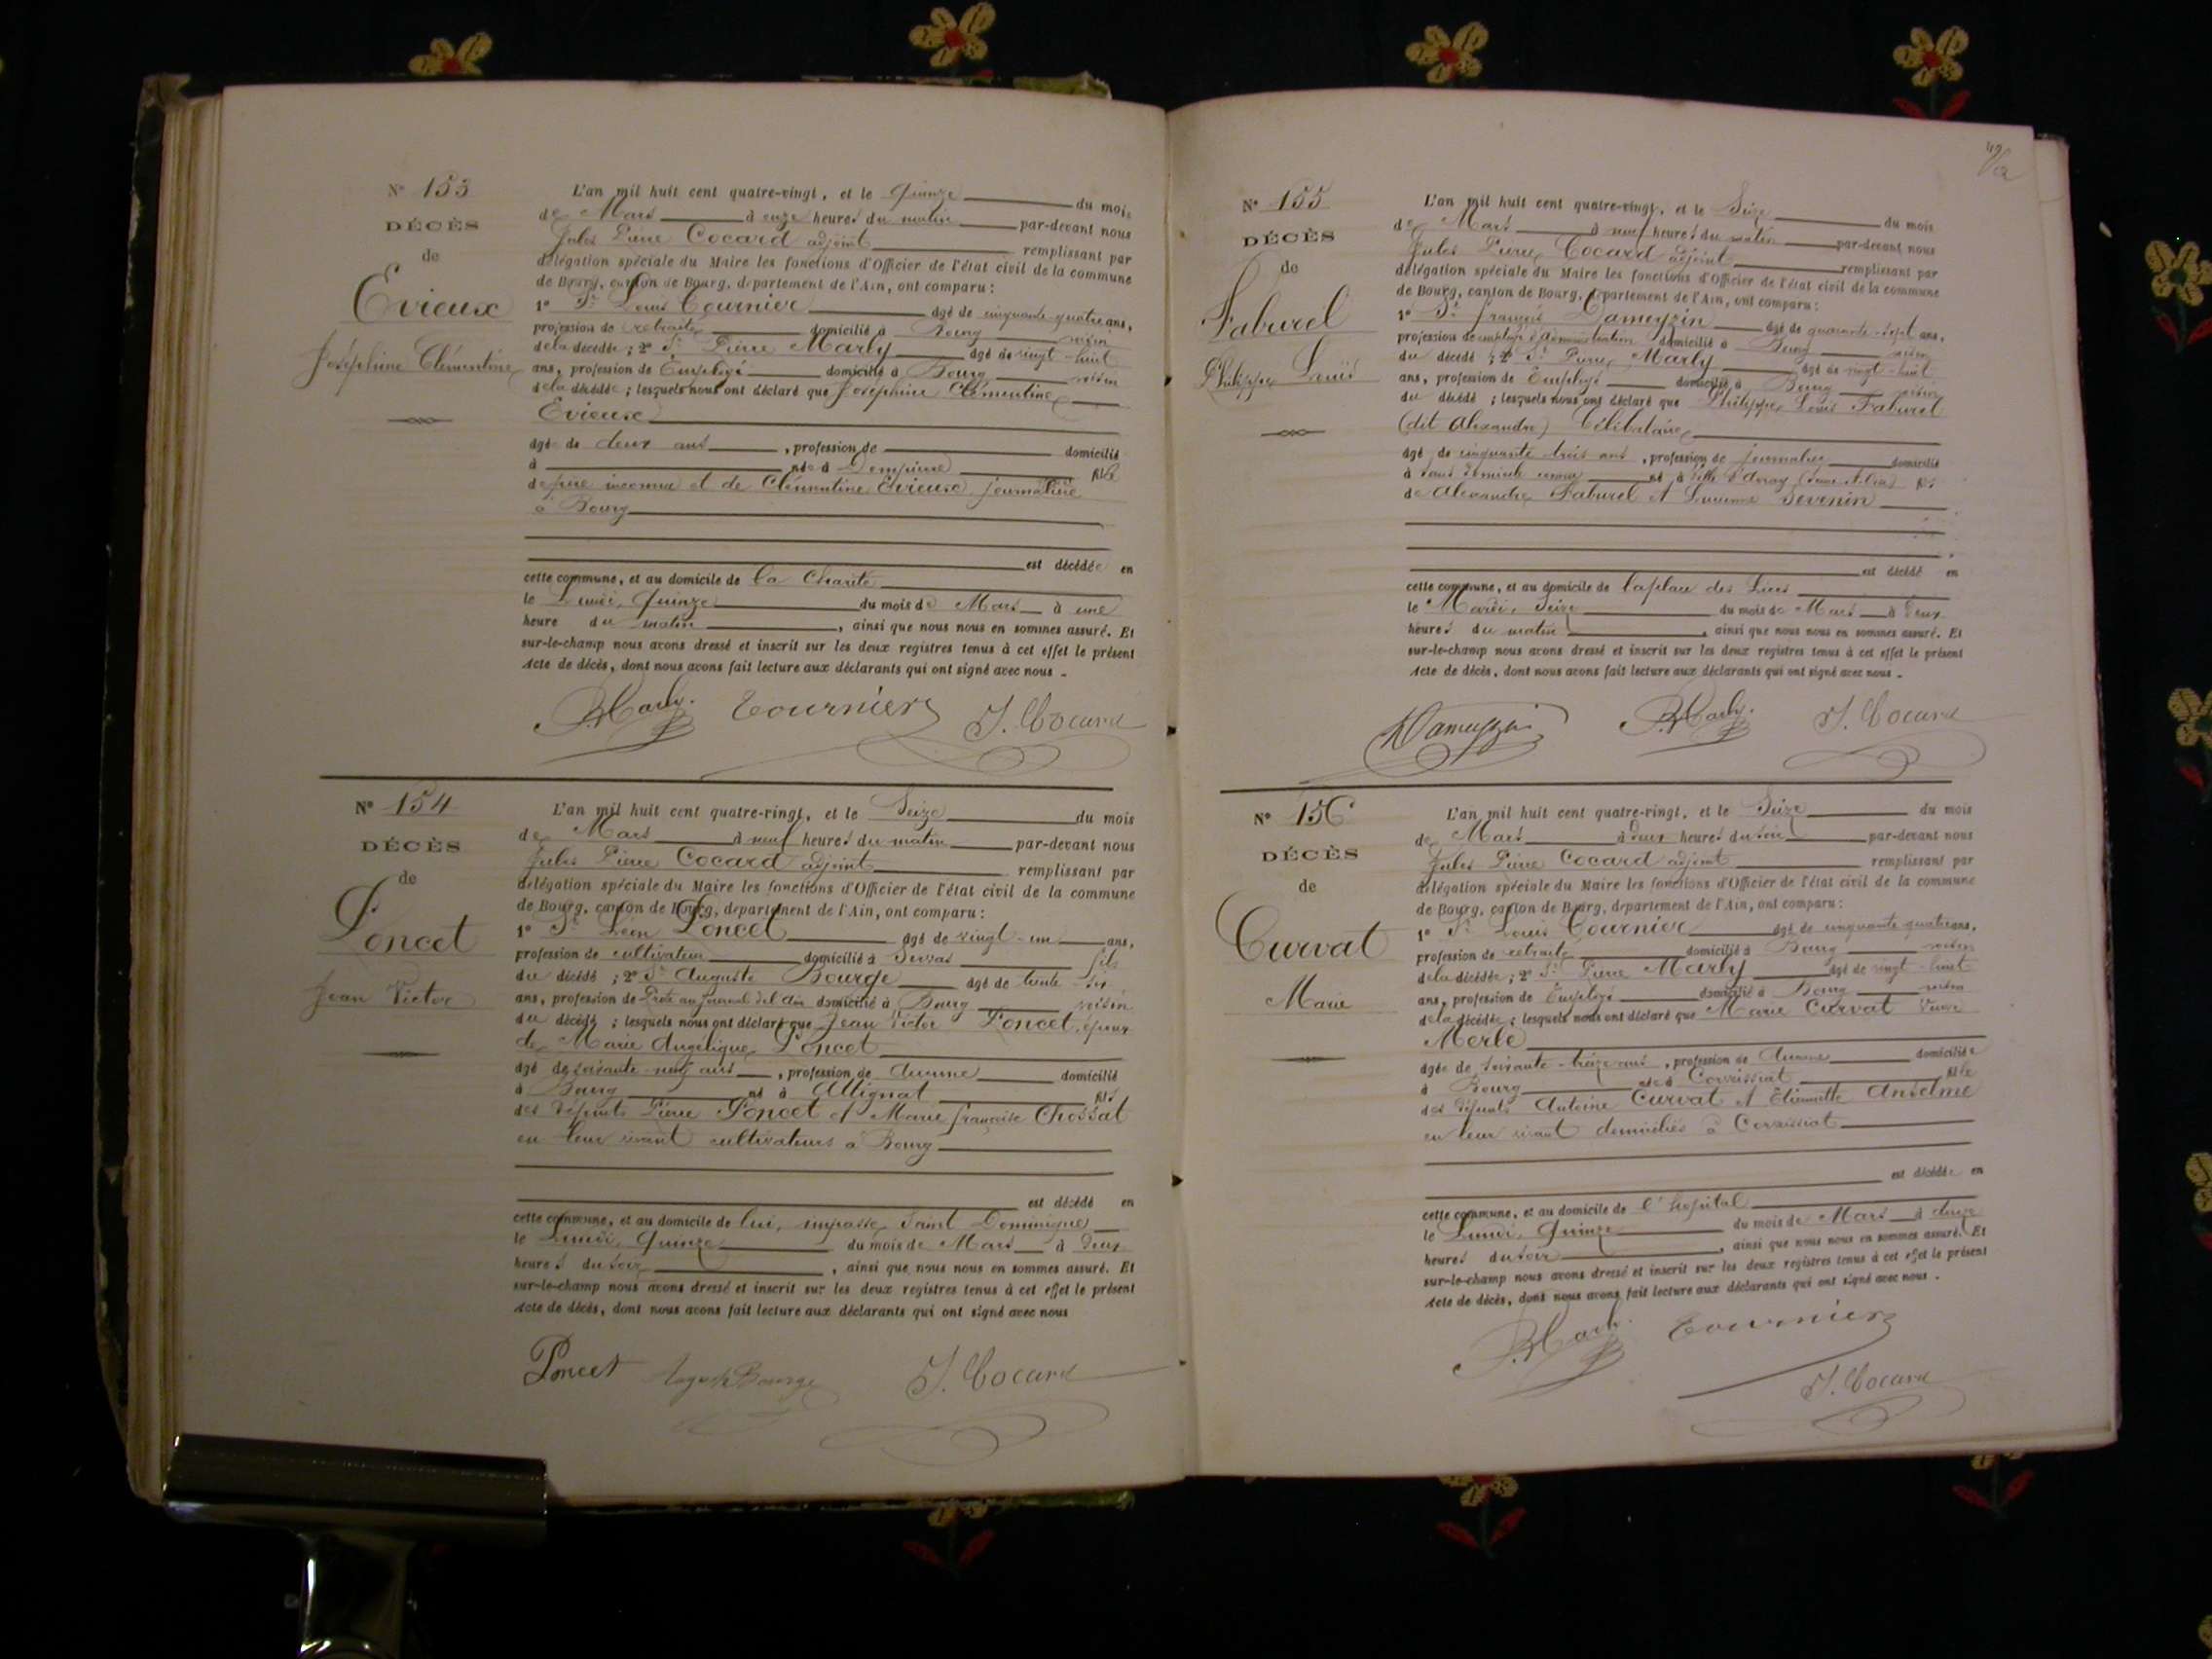 N° 153
DÉCÈS
de
Evieux
Joséphine Clémentine
L'an mil huit cent quatre-vingt, et le Quinze du mois
de Mars à onze heures du matin par-devant nous
Jules Pierre Cocard adjoint remplissant par
délégation spéciale du Maire les fonctions d'Officier de l'état civil de la commune
de Bourg, canton de Bourg, département de l'Ain, ont comparu :
1° Sr Louis Tournier âgé de cinquante-quatre ans,
profession de retraité domicilié à Bourg voisin
de la décédée ; 2° Sr Pierre Marly âgé de vingt-huit
ans, profession de Employé domicilié à Bourg voisin
de la décédée ; lesquels nous ont déclaré que Joséphine Clémentine
Evieux
âgée de deux ans, profession de domicilié
à née à Dompierre fille
de père inconnu et de Clémentine Evieux journalière
à Bourg
est décédée en
cette commune, et au domicile de la Charité
le Lundi, Quinze du mois de Mars à une
heure du matin, ainsi que nous nous en sommes assuré. Et
sur-le-champ nous avons dressé et inscrit sur les deux registres tenus à cet effet le présent
Acte de décès, dont nous avons fait lecture aux déclarants qui ont signé avec nous.
P. Marly. Tournier J. Cocard
N° 154
DÉCÈS
de
Poncet
Jean Victor
L'an mil huit cent quatre-vingt, et le Seize du mois
de Mars à neuf heures du matin par-devant nous
Jules Pierre Cocard adjoint remplissant par
délégation spéciale du Maire les fonctions d'Officier de l'état civil de la commune
de Bourg, canton de Bourg, département de l'Ain, ont comparu :
1° Sr Léon Poncet âgé de vingt-un ans,
profession de cultivateur domicilié à Servas fils
du décédé ; 2° Sr Auguste Bourge âgé de trente-
ans, profession de Prote au Journal de l'Ain domicilié à Bourg voisin
du décédé ; lesquels nous ont déclaré que Jean Victor Poncet, époux
de Marie Angélique Poncet
âgé de soixante-neuf ans, profession de Aucune domicilié
à Bourg né à Attignat fils
des défunts Pierre Poncet et Marie françoise Chossat
en leur vivant cultivateurs à Bourg
est décédé en
cette commune, et au domicile de lui, impasse Saint Dominique
le Lundi, Quinze du mois de Mars à deux
heures du soir, ainsi que nous nous en sommes assuré. Et
sur-le-champ nous avons dressé et inscrit sur les deux registres tenus à cet effet le présent
Acte de décès, dont nous avons fait lecture aux déclarants qui ont signé avec nous
Poncet Auguste Bourge J. Cocard
42
N° 155
DÉCÈS
de
Faburel
Philippe Louis
L'an mil huit cent quatre-vingt, et le Seize du mois
de Mars à neuf heures du matin par-devant nous
Jules Pierre Cocard adjoint remplissant par
délégation spéciale du Maire les fonctions d'Officier de l'état civil de la commune
de Bourg, canton de Bourg, département de l'Ain, ont comparu :
1° Sr françois Dameyzin âgé de quarante-sept ans,
profession de employé d'administration domicilié à Bourg voisin
du décédé ; 2° Sr Pierre Marly âgé de vingt-huit
ans, profession de Employé domicilié à Bourg voisin
du décédé ; lesquels nous ont déclaré que Philippe Louis Faburel
(dit Alexandre) Célibataire
âgé de cinquante trois ans, profession de journalier domicilié
à sans domicile connu né à Ville d'Avray (Seine et Oise) fils
de Alexandre Faburel et Sevenin
est décédé en
cette commune, et au domicile de la place des Lices
le Mardi, Seize du mois de Mars à deux
heures du matin, ainsi que nous nous en sommes assuré. Et
sur-le-champ nous avons dressé et inscrit sur les deux registres tenus à cet effet le présent
Acte de décès, dont nous avons fait lecture aux déclarants qui ont signé avec nous.
Dameyzin P. Marly. J. Cocard
N° 156
DÉCÈS
de
Curvat
Marie
L'an mil huit cent quatre-vingt, et le Seize du mois
de Mars à deux heures du soir par-devant nous
Jules Pierre Cocard adjoint remplissant par
délégation spéciale du Maire les fonctions d'Officier de l'état civil de la commune
de Bourg, canton de Bourg, département de l'Ain, ont comparu :
1° Sr Louis Tournier âgé de cinquante-quatre ans,
profession de retraité domicilié à Bourg voisin
de la décédée ; 2° Sr Pierre Marly âgé de vingt-huit
ans, profession de Employé domicilié à Bourg voisin
de la décédée ; lesquels nous ont déclaré que Marie Curvat Veuve
Merle
âgée de soixante-treize ans, profession de Aucune domiciliée
à Bourg née à Corveissiat fille
des défunts Antoine Curvat et Etiennette Anselme
en leur vivant domiciliés à Corveissiat
est décédée en
cette commune, et au domicile de l'hopital
le Lundi, Quinze du mois de Mars à
heures du soir, ainsi que nous nous en sommes assuré. Et
sur-le-champ nous avons dressé et inscrit sur les deux registres tenus à cet effet le présent
Acte de décès, dont nous avons fait lecture aux déclarants qui ont signé avec nous.
P. Marly. Tournier
J. Cocard